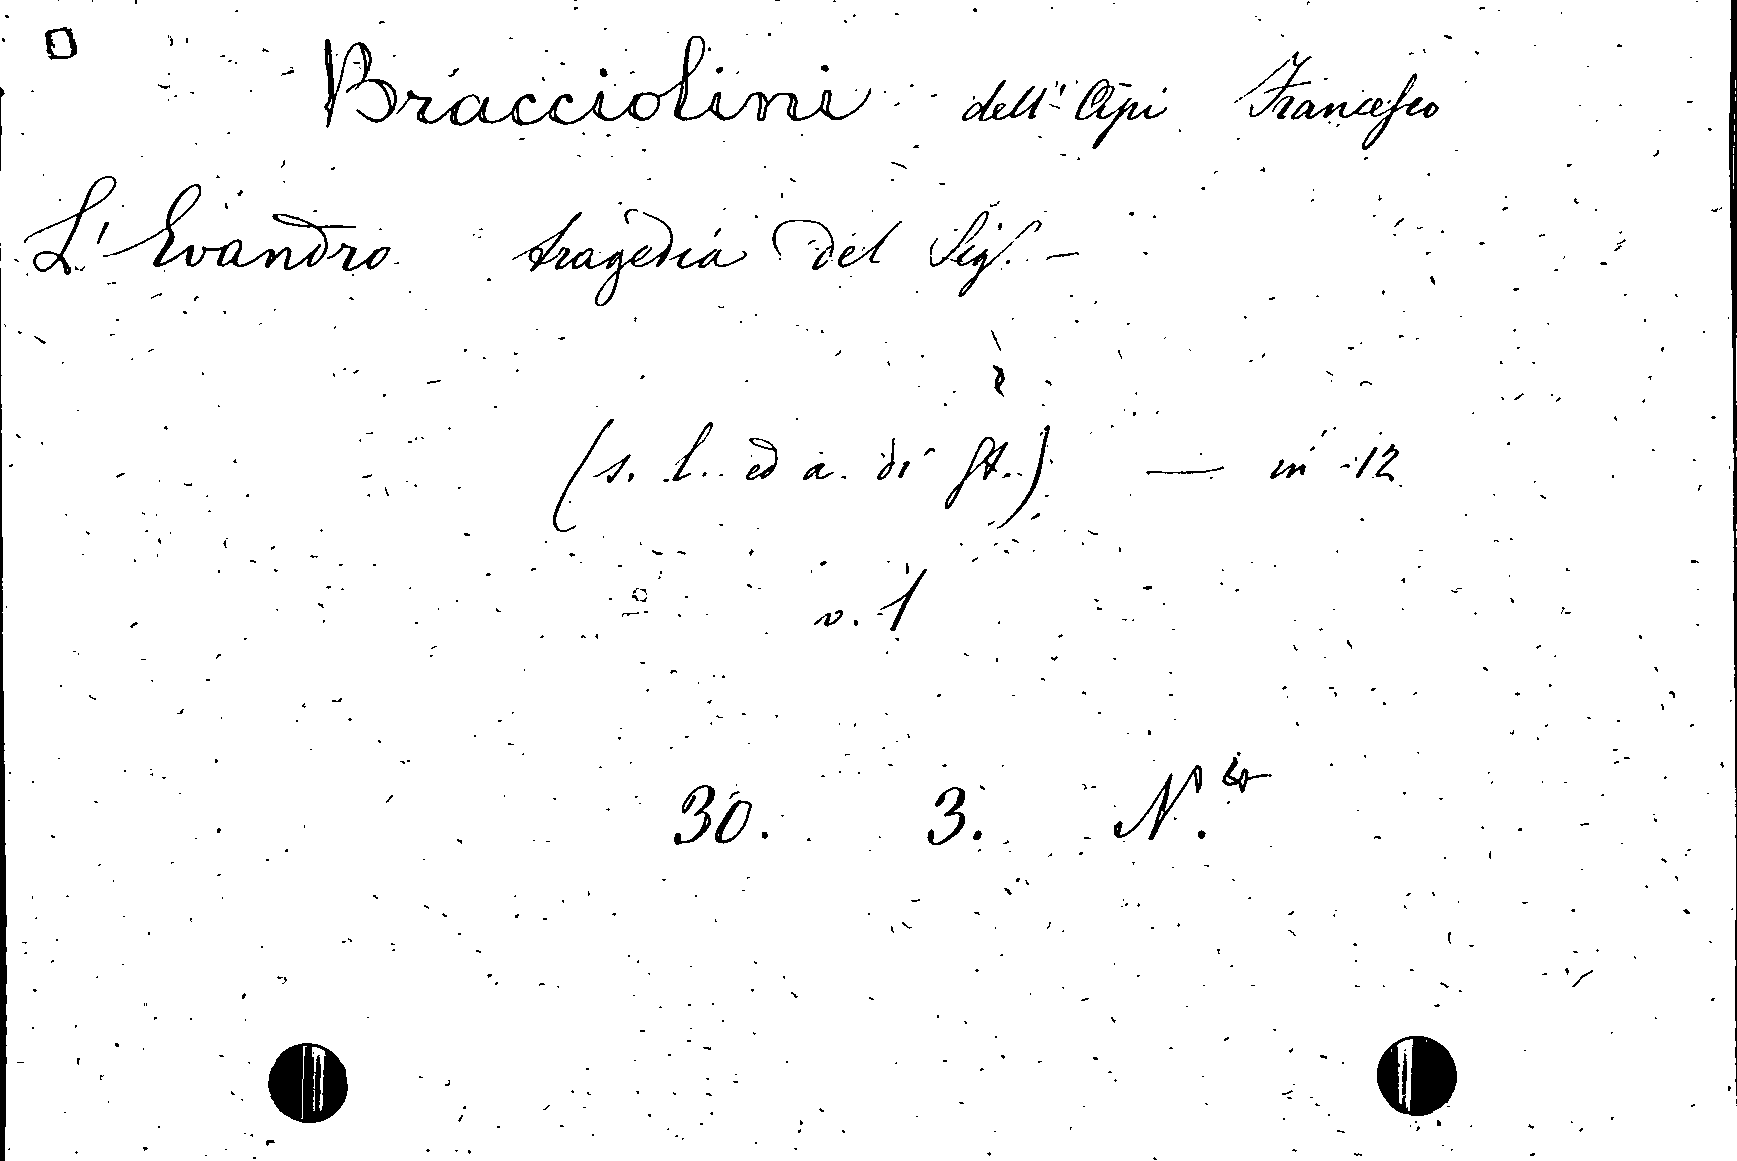 Bracciolini dell' Api Francesco
L' Evandro tragedia del Sig. —
(s. l. ed a. di st.) — in -12
v. 1
30. 3. N. 4